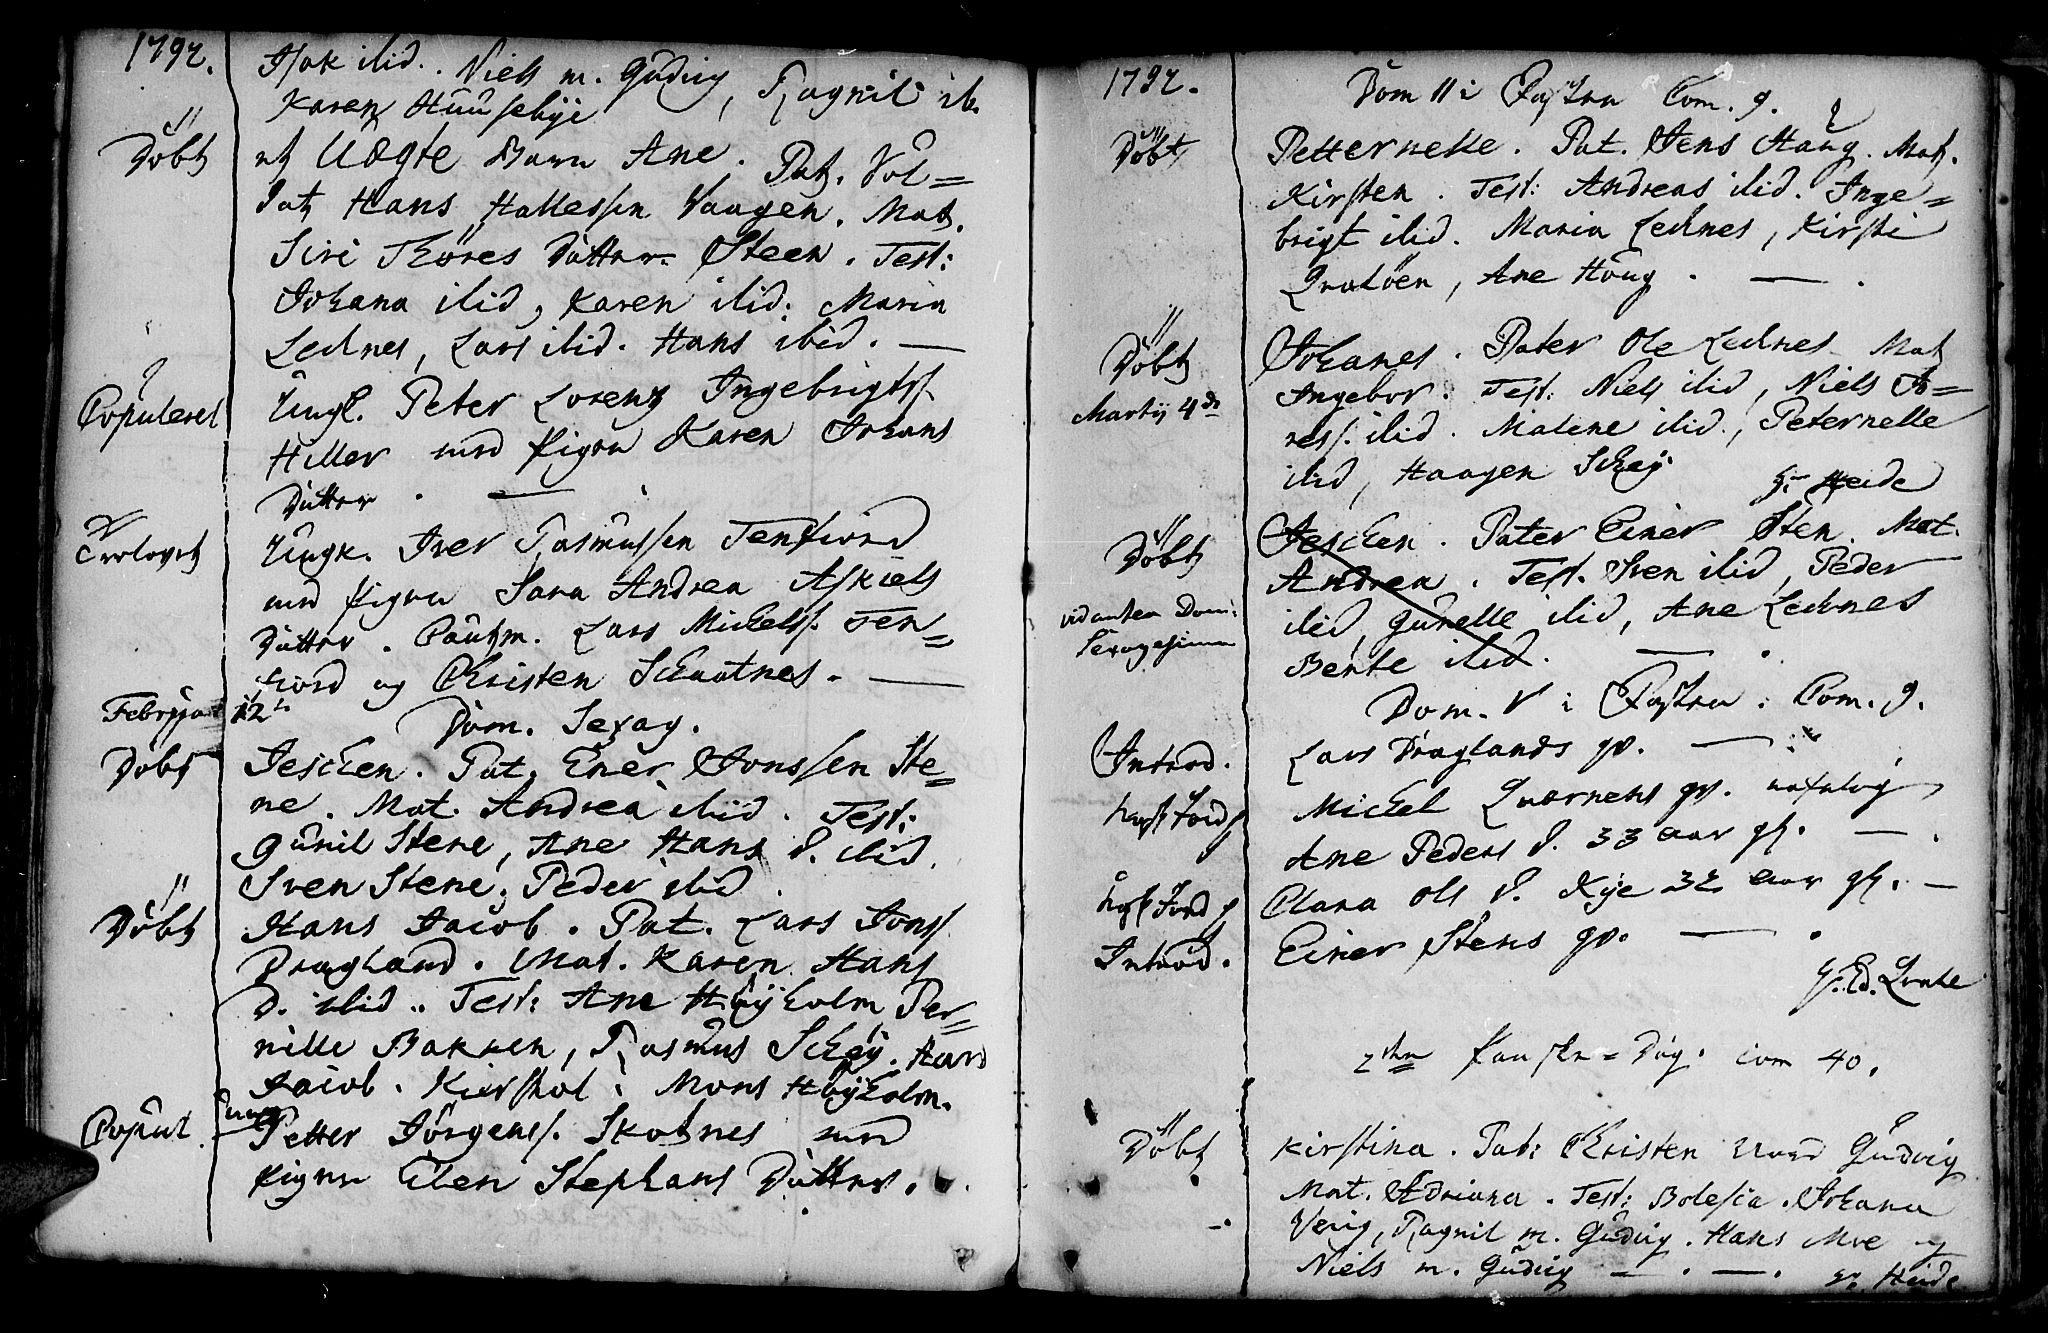 1792.
Isak ibid. Niels m. Gudvig, Ragnil ib.
Karen Huusebye
Döbt et Uægte Barn Ane. Pat. Sol=
dat Hans Hallessen Vaagen. Mat.
Siri Thores Datter Steen. Test:
Johana ibid, Karen ibid. Maria
Lednes, Lars ibid. Hans ibid. —
Copuleret Ungk. Peter Lorentz Ingebrigtss.
Hiller med Pigen Karen Johans
Datter. —
Trolovet Ungk. Iver Rasmussen Tenfiord
med Pigen Sara Andrea Askiels
Datter. Cautm. Lars Michelss. Ten=
fiord og Christen Schaatnes. —
Februar 12te Dom. Sexag.
Döbt Jeschen. Pat. Ener Jonssen Ste=
ne. Mat. Andrea ibid. Test:
Gunil Stene, Ane Hans D. ibid.
Sven Stene, Peder ibid.
Döbt Hans Jacob. Pat. Lars Jonss.
Dragland. Mat. Karen Hans
D. ibid. Test: Ane Høyholm Per=
nille Bakken, Rasmus Schey. Hans
Jacob. Kiershol. Mons Høyholm.
Copul. Ungk. Petter Jörgenss. Skotnes med
Pigen Elen Stephans Datter.
1792.
Dom II i Fasten Com. 9.
Döbt Petternelle. Pat. Jens Haug. Mat.
Kirsten. Test: Andreas ibid. Inge=
brigt ibid. Maria Lednes, Kirsti
Qvaløen, Ane Houg. —
Döbt Johanes. Pater Ole Lednes. Mat
Martij 4de Ingebor. Test: Niels ibid, Niels Jo=
ness. ibid. Malene ibid., Peternelle
ibid, Haagen Schey.
Hr Heide
Döbt Jeschen. Pater Einer Sten. Mat.
vid anten Dom: Andrea. Test. Sven ibid, Peder
Sexagesima ibid, Gunelle ibid, Ane Lednes
Bente ibid. —
Dom. V i Fasten. Com. 9.
Introd. Lars Draglands qv. —
Michel Qværnens qv.
Ane Peders D. 33 aar gl. —
Clara Ols D. Kye 32 aar gl. —
Introd. Einer Stens qv. —
Hr. Ed. Qvale
2den Paaske=Dag. Com 40.
Döbt Kirstina. Pat: Christen Gudvig
Mat. Adriana. Test: Bolesia. Johana
Verig, Ragnil m. Gudvig. Hans Moe og
Niels m. Gudvig — . — . Hr. Heide